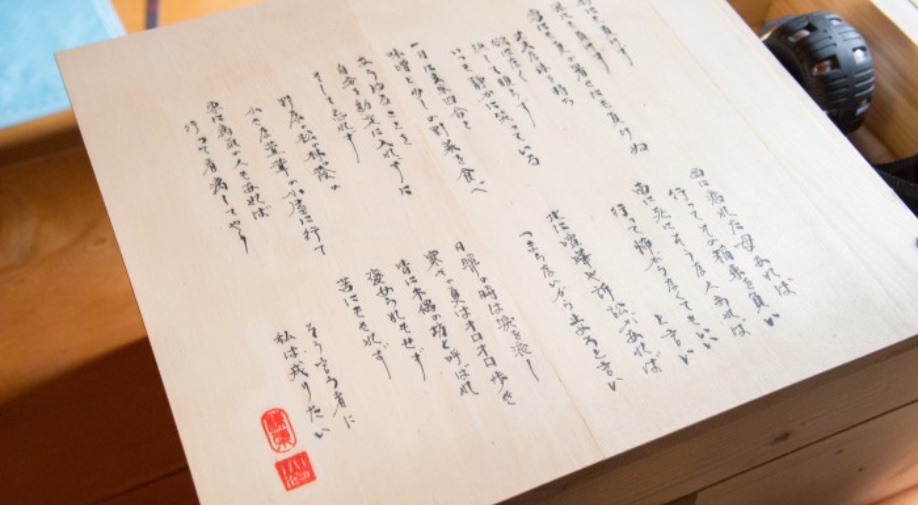 雨にも負けず
風にも負けず
雪にも夏の暑さにも負けぬ
丈夫な体を持ち
慾はなく
決して瞋らず
いつも静かに笑っている
一日に玄米四合と
味噌と少しの野菜を食べ
あらゆることを
自分を勘定に入れずに
そして忘れず
野原の松の林の蔭の
小さな萱葺の小屋に行て
東に病気の人あれば
行って看病してやり
西に疲れた母あれば
行ってその稲束を負い
南に死にそうな人あれば
行って怖がらなくてもいい
と言い
北に喧嘩や訴訟があれば
つまらないから止めろと言い
日照の時は涙を流し
寒さの夏はオロオロ歩き
皆に木偶の坊と呼ばれ
褒められもせず
苦にもされず
そう言う者に
私は成りたい